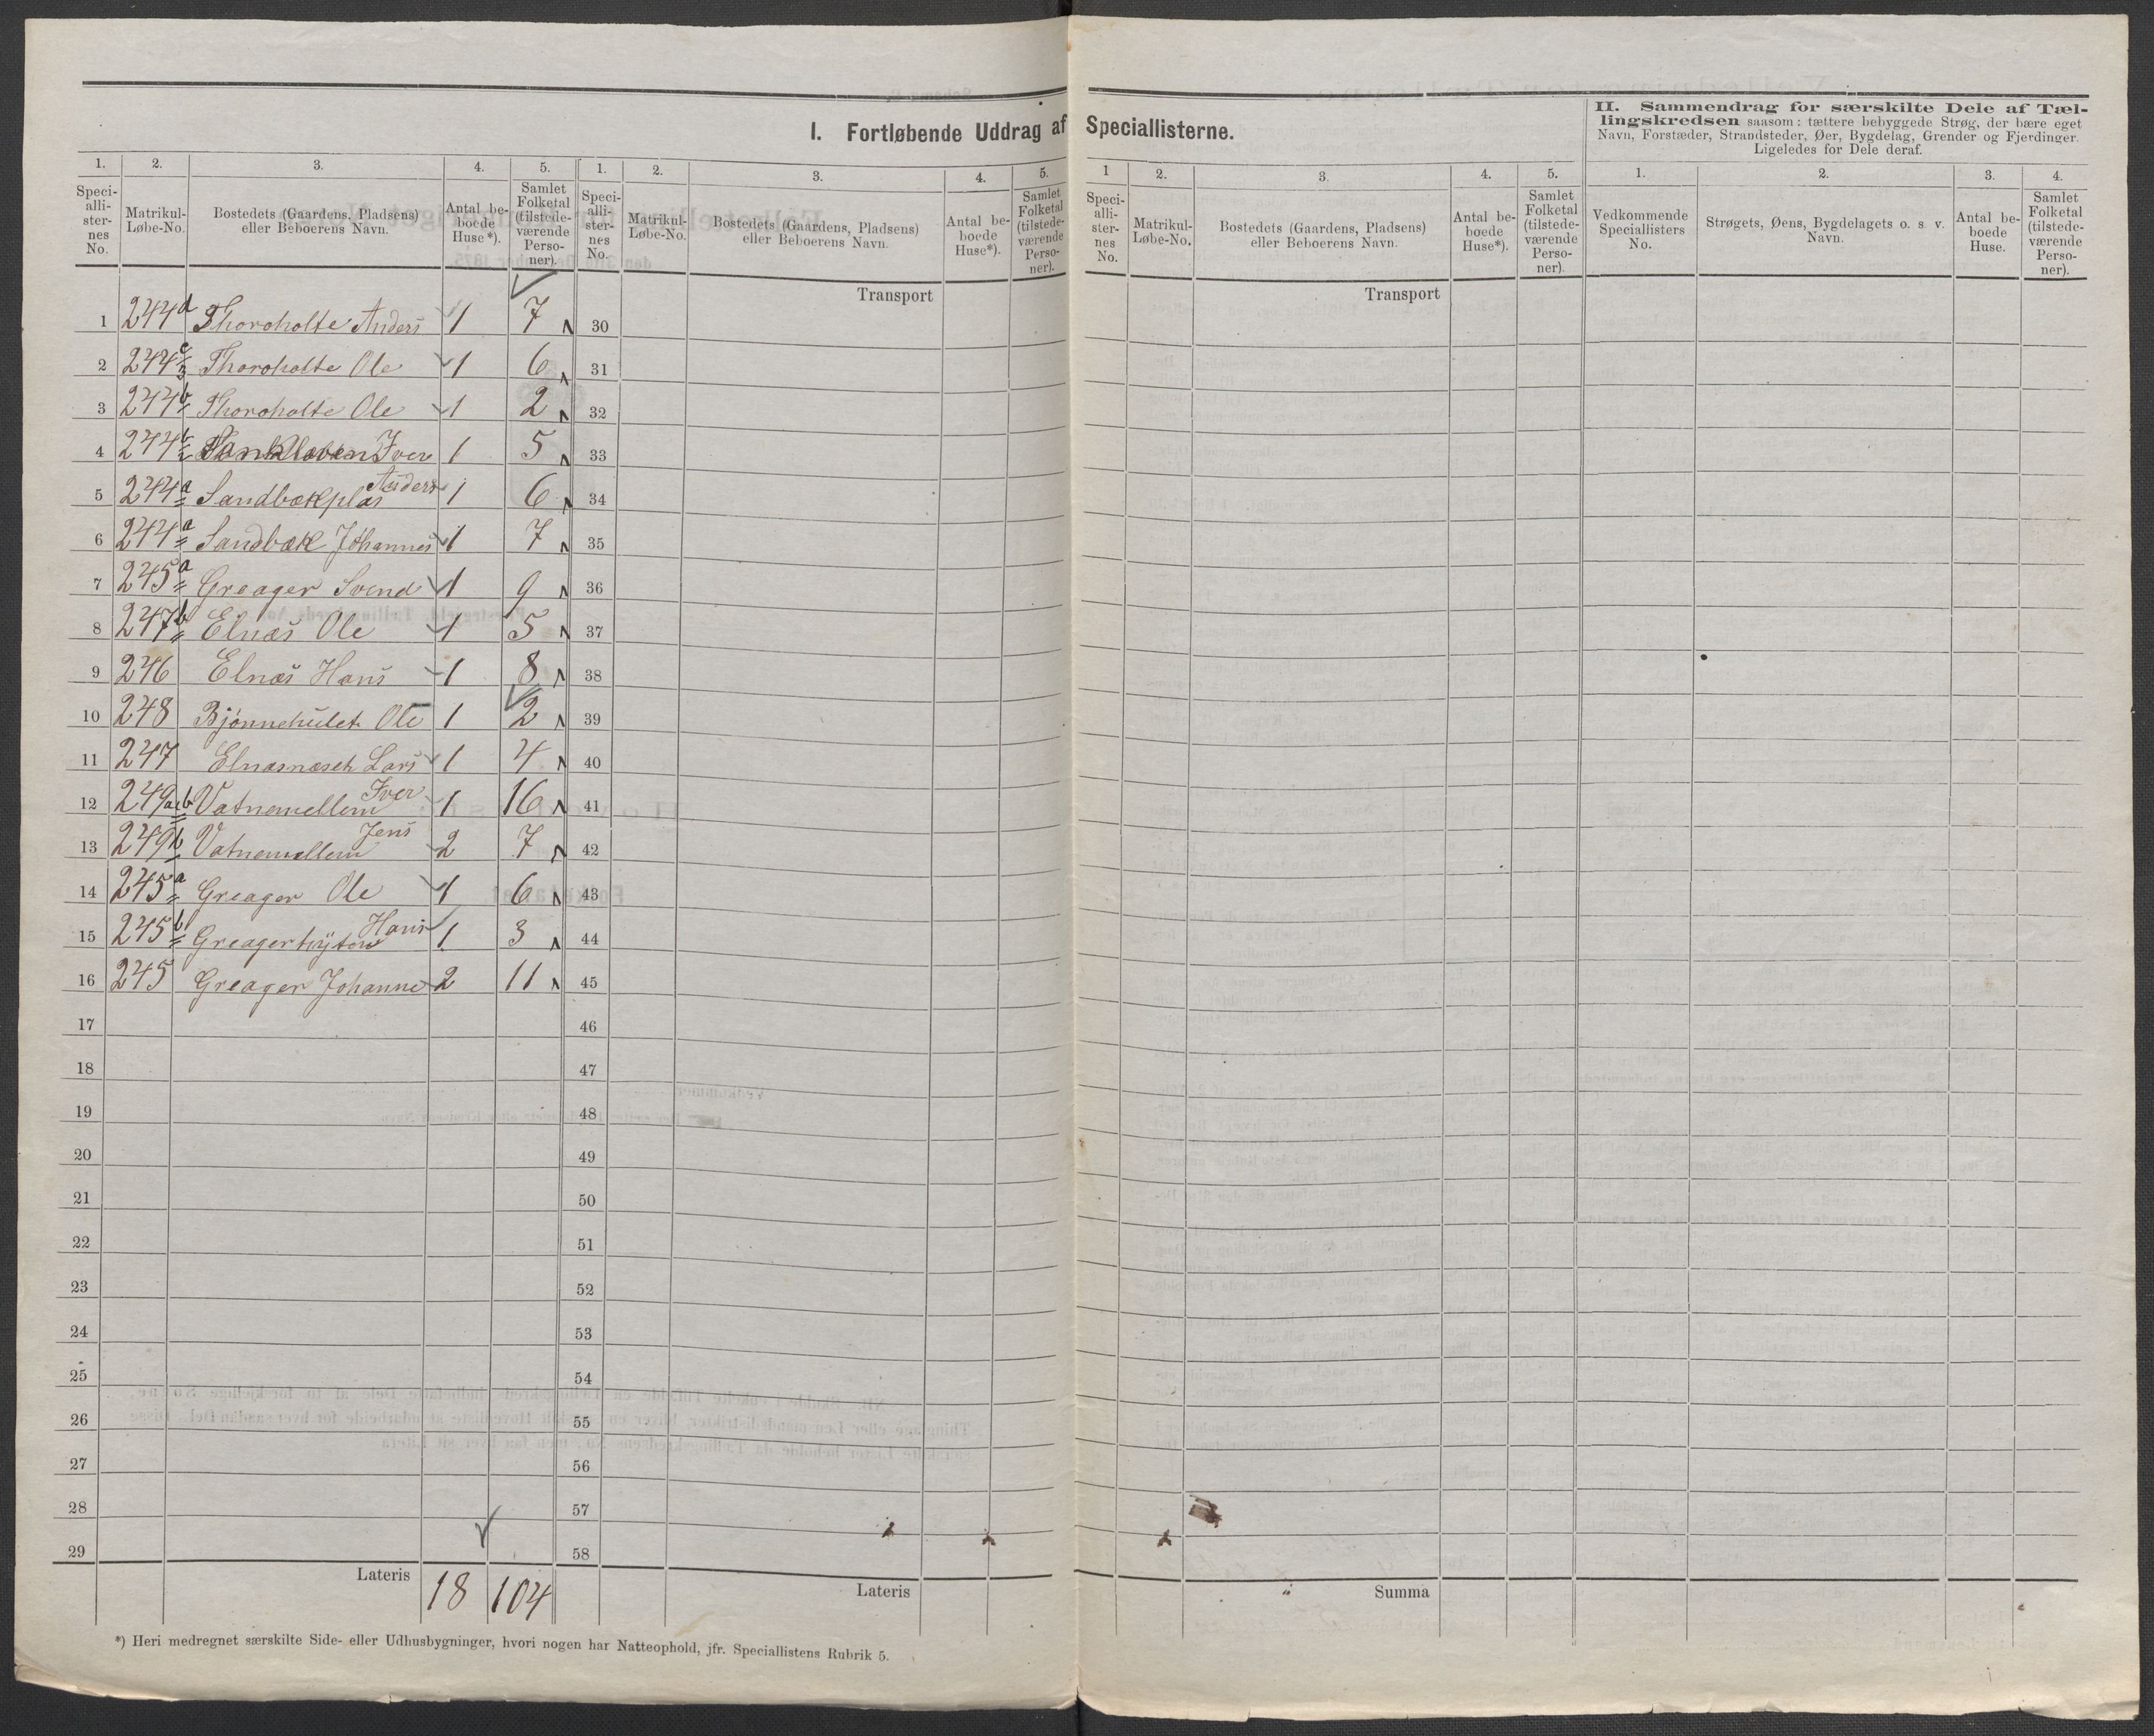 I. Fortløbende Uddrag af Speciallisterne.
II. Sammendrag for særskilte Dele af Tæl-
lingskredsen saasom: tættere bebyggede Strøg, der bære eget
Navn, Forstæder, Strandsteder, Øer, Bygdelag, Grender og Fjerdinger.
Ligeledes for Dele deraf.
1. 2. 3. 4. 5. 1. 2. 3. 4. 5. 1 2. 3. 4. 5. 1. 2. 3. 4.
Speci-
alli-
ster-
nes
No.
Matrikul-
Løbe-No.
Bostedets (Gaardens, Pladsens)
eller Beboerens Navn.
Antal be-
boede
Huse*).
Samlet
Folketal
(tilstede-
værende
Perso-
ner).
Speci-
alli-
ster-
nes
No.
Matrikul-
Løbe-No.
Bostedets (Gaardens, Pladsens)
eller Beboerens Navn.
Antal be-
boede
Huse*).
Samlet
Folketal
(tilstede-
værende
Perso-
ner).
Speci-
alli-
ster-
nes
No.
Matrikul-
Løbe-No.
Bostedets (Gaardens, Pladsens)
eller Beboerens Navn.
Antal be-
boede
Huse*).
Samlet
Folketal
(tilstede-
værende
Perso-
ner).
Vedkommende
Speciallisters
No.
Strøgets, Øens, Bygdelagets o. s. v.
Navn.
Antal be-
boede
Huse.
Samlet
Folketal
(tilstede-
værende
Perso-
ner).
Transport
Transport
1 244d Thoroholte Anders 1 7 30
2 244c Thoroholte Ole 1 6 31
3 244b Thoroholte Ole 1 2 32
4 244b Iver 1 5 33
5 244a Sandbækplas Anders 1 6 34
6 244a Sandbæk Johannes 1 7 35
7 245a Greager Svend 1 9 36
8 247b Elnæs Ole 1 5 37
9 246 Elnæs Hans 1 8 38
10 248 Bjønnehulet Ole 1 2 39
11 247 Elnæsnæseh Lars 1 4 40
12 249a&b Vatnemellem Iver 1 16 41
13 249b Vatnemellem Jens 2 7 42
14 245a Greager Ole 1 6 43
15 245b Hans 1 3 44
16 245 Greager Johanne 2 11 45
17 46
18 47
19 48
20 49
21 50
22 51
23 52
24 53
25 54
26 55
27 56
28 57
29 58
Lateris 18 104 Lateris Summa
*) Heri medregnet særskilte Side- eller Udhusbygninger, hvori nogen har Natteophold, jfr. Speciallistens Rubrik 5.